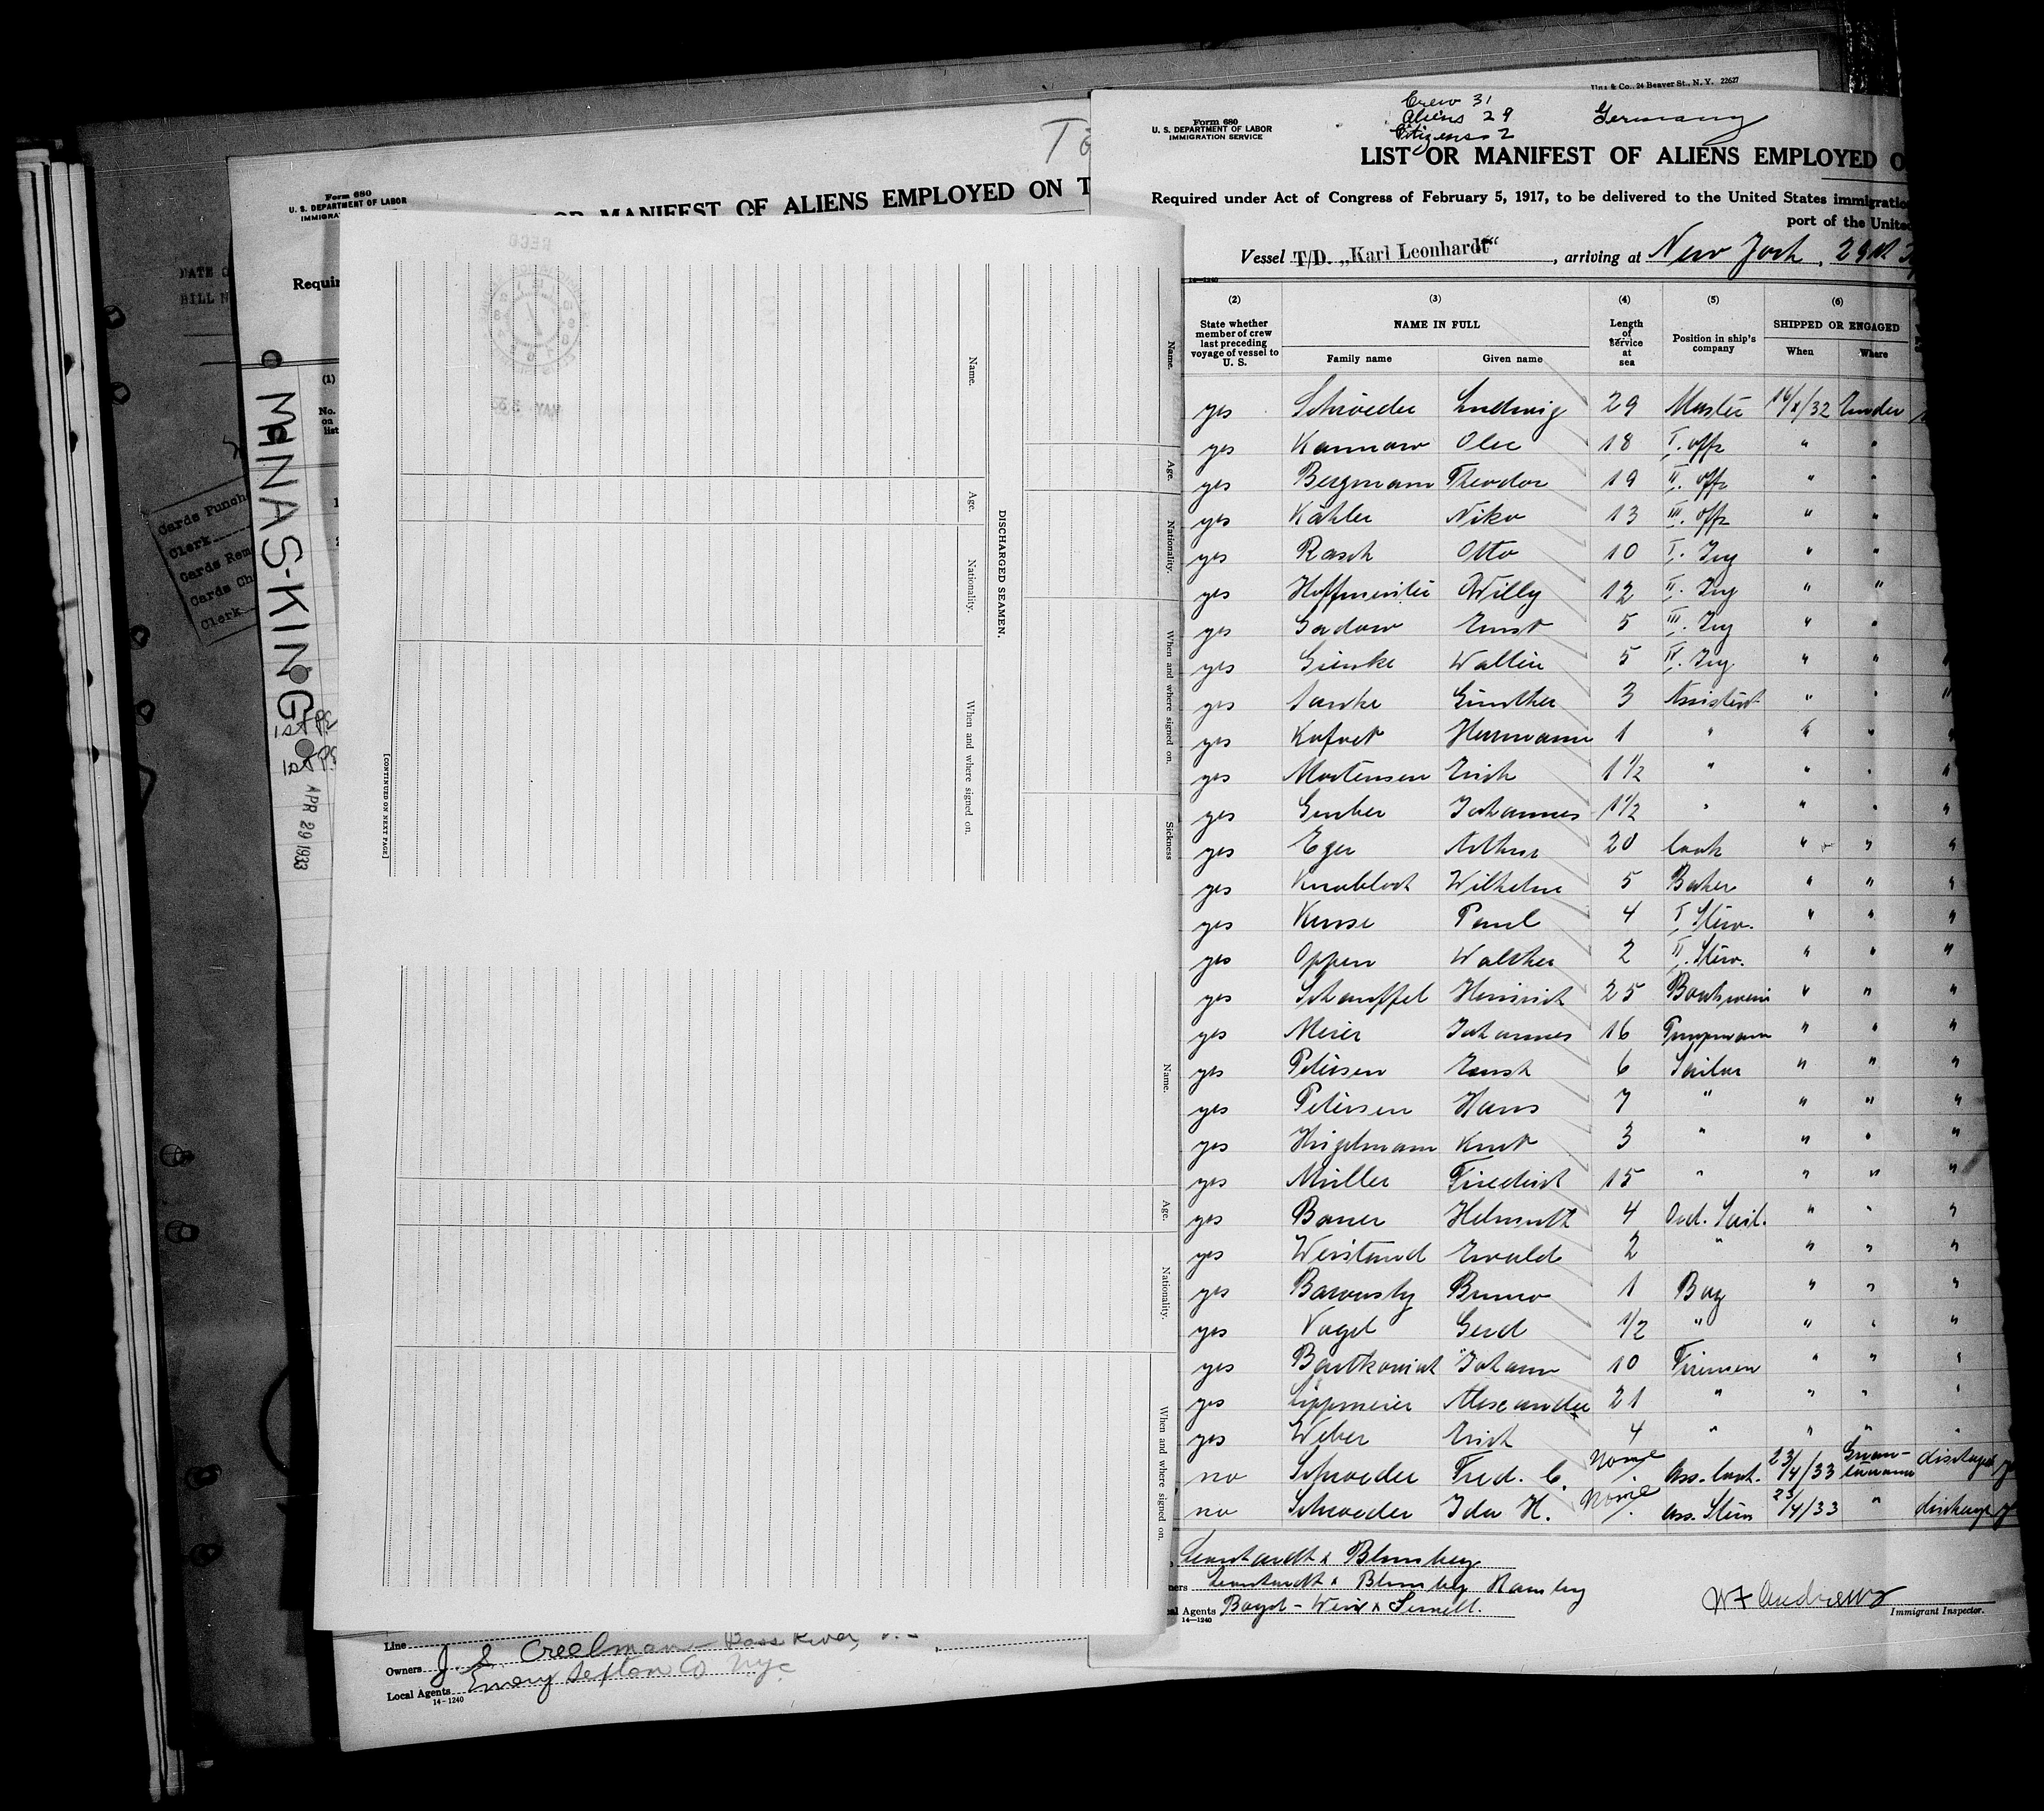 DATE O
BILL N
Cards Punch
Clerk
Cards Rem
Cards Ch
Clerk
Form 680
U. S. DEPARTMENT OF LABOR
IMMIGRA
OR MANIFEST OF ALIENS EMPLOYED ON T
Requir
(1)
No. on list
MINAS-KING
1st
1st
APR 29 1933
Name.
Age.
Nationality.
When and where signed on.
DISCHARGED SEAMEN.
[CONTINUED ON NEXT PAGE]
Name.
Age.
Nationality.
When and where signed on.
Sickness
Name.
Age.
Nationality.
When and where signed on.
Line
Owners J. S. Creelman - Bass River,
Local Agents Emery Sefton Co NYC
14-1240
& Co., 24 Beaver St., N. Y. 22627
Crew 31
Aliens 29
Citizens 2
Germany
Form 680
U. S. DEPARTMENT OF LABOR
IMMIGRATION SERVICE
LIST OR MANIFEST OF ALIENS EMPLOYED O
Required under Act of Congress of February 5, 1917, to be delivered to the United States immigratio
port of the United
Vessel T/D. „Karl Leonhardt“, arriving at New York, 29th
14-1240
(2) (3) (4) (5) (6)
State whether member of crew last preceding voyage of vessel to U. S. NAME IN FULL Length of service at sea Position in ship's company SHIPPED OR ENGAGED
Family name Given name When Where
yes Schröeder Ludwig 29 Master 16/x/32 Emden
yes Kannow 18 I. offz " "
yes Bergmann Theodor 19 II. offz " "
yes Kähler Niko 13 III. offz " "
yes Rasch Otto 10 I. Ing " "
yes Hoffmeister Willy 12 II. Ing " "
yes Gadow Ernst 5 III. Ing " "
yes Walter 5 IV. Ing. " " "
yes Günther 3 Assistent " " "
yes Hermann 1 " " " "
yes Mortensen Erich 1 1/2 " " " "
yes Johannes 1 1/2 " " " "
yes Eger Arthur 20 Cook " " "
yes Knobloch Wilhelm 5 Baker " " "
yes Kruse Paul 4 I. Stew. " " "
yes Oppen Walther 2 II. Stew. " " "
yes Schauffel Heinrich 25 " " "
yes Meier Johannes 16 Pumpmann " " "
yes Petersen Ernst 6 Sailor " " "
yes Petersen Hans 7 " " " "
yes Knut 3 " " " "
yes Müller Friedrich 15 " " " "
yes Bauer Helmuth 4 Ord. Sail. " " "
yes Ewald 2 " " " "
yes Bruno 1 Boy " " "
yes Vogel Gerd 1/2 " " " "
yes Bartkowiak Johann 10 Firemen " " "
yes Lippmeier Alexander 21 " " " "
yes Weber Erich 4 " " " "
no Schroeder Fred. C. None Ass. Cook. 23/4/33 Guantanamo
no Schroeder Ida H. None Ass. Stew 23/4/33 " discharge
Leonhardt & Blumberg
ners Leonhardt & Blumberg Hamburg
al Agents Boyd - Weir & Sewell.
14-1240
W F Andrews
Immigrant Inspector.